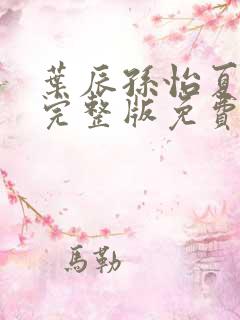 葉辰孫怡夏
完整版免費
馬勒